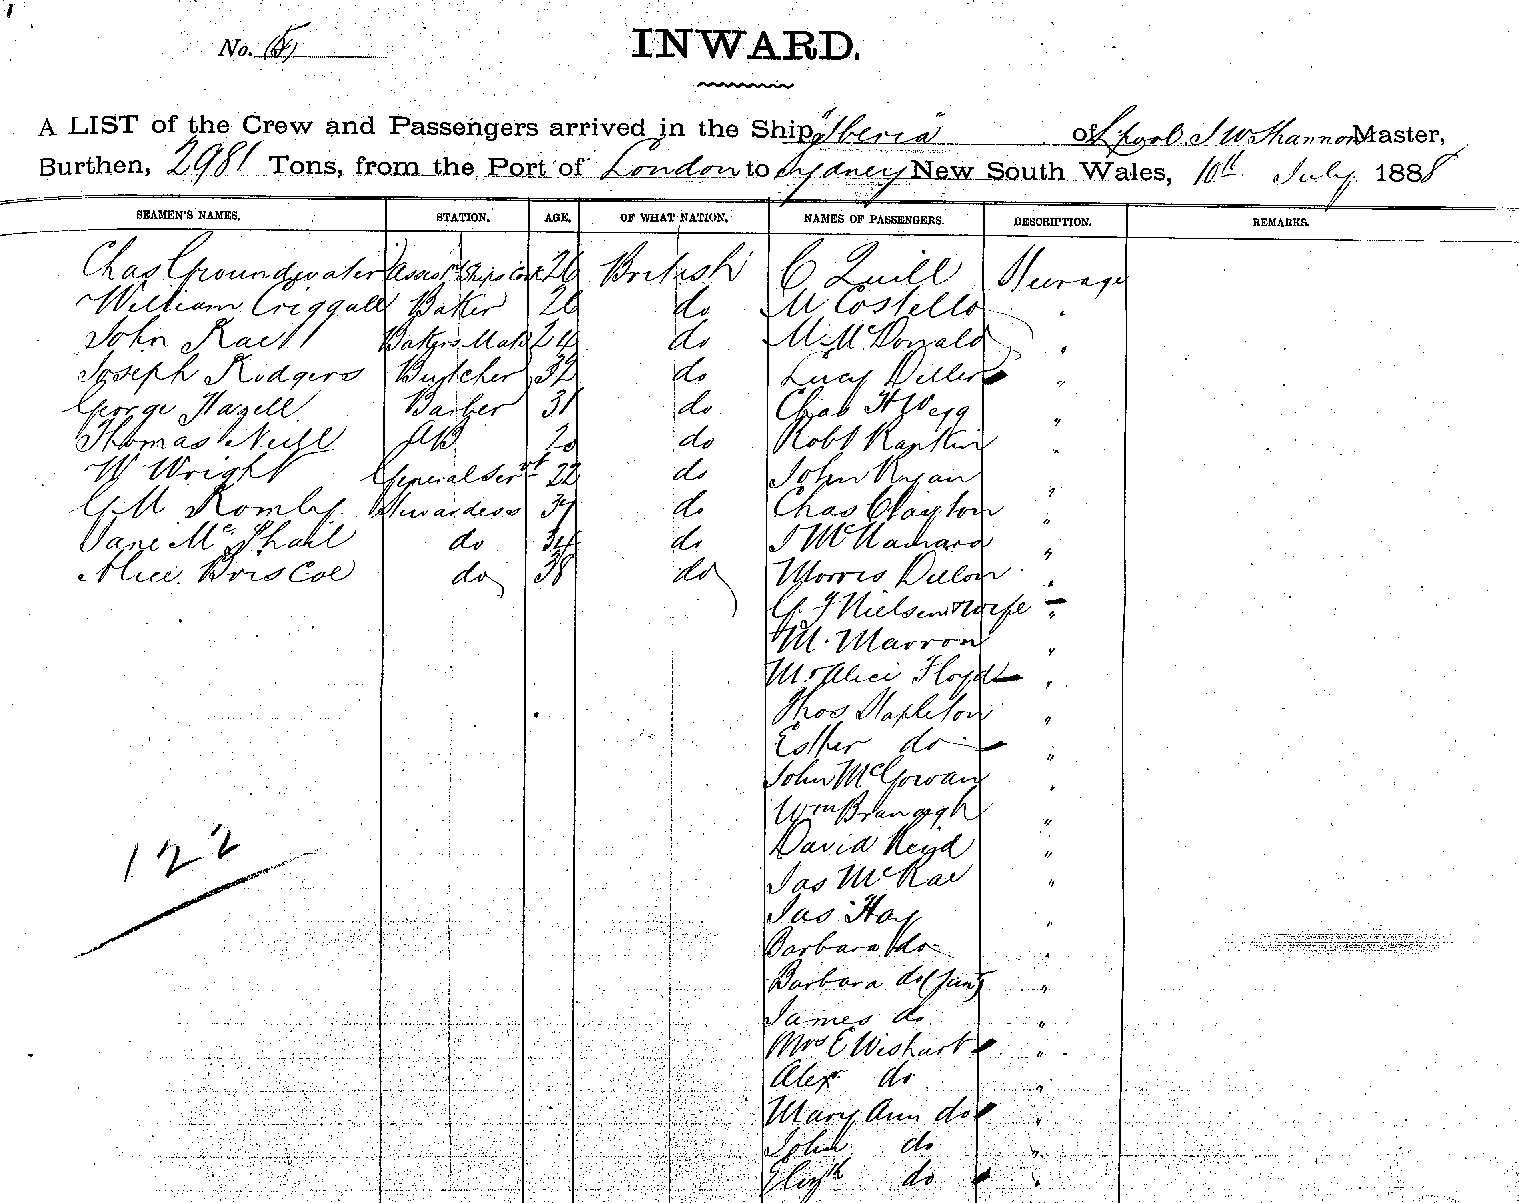 No. (5)
INWARD.
A LIST of the Crew and Passengers arrived in the Ship "Iberia" of L'pool J W Shannon Master,
Burthen, 2981 Tons, from the Port of London to Sydney New South Wales, 10th July 1888
SEAMEN'S NAMES. STATION. AGE. OF WHAT NATION. NAMES OF PASSENGERS. DESCRIPTION. REMARKS.
Chas Groundwater Assist Ships Cook 26 British C Quill Steerage
William Criggall Baker 26 do M Costello "
John Rae Bakers Mate 24 do M McDonald "
Joseph Rodgers Butcher 32 do Lucy Diller "
George Hazell Barber 31 do Chas H Wegg "
Thomas Neill AB 20 do Robt Rankin "
W Wright General Servt 22 do John Ryan "
G M Romly Stewardess 37 do Chas Clayton "
Jane McPhail do 34 do J McNamara "
Alice Briscoe do 38 do Morris Dillon "
G J Nielsen & Wife "
M. Marron "
Mrs Alice Floyd "
Thos Stapleton "
Esther do "
John McGowan "
Wm Branagh "
David Reid "
Jas McRae "
Jas Hay "
Barbara do "
Barbara do (Junr) "
James do "
Mrs E Wishart "
Alexr do "
Mary Ann do "
John do "
Elizth do "
122